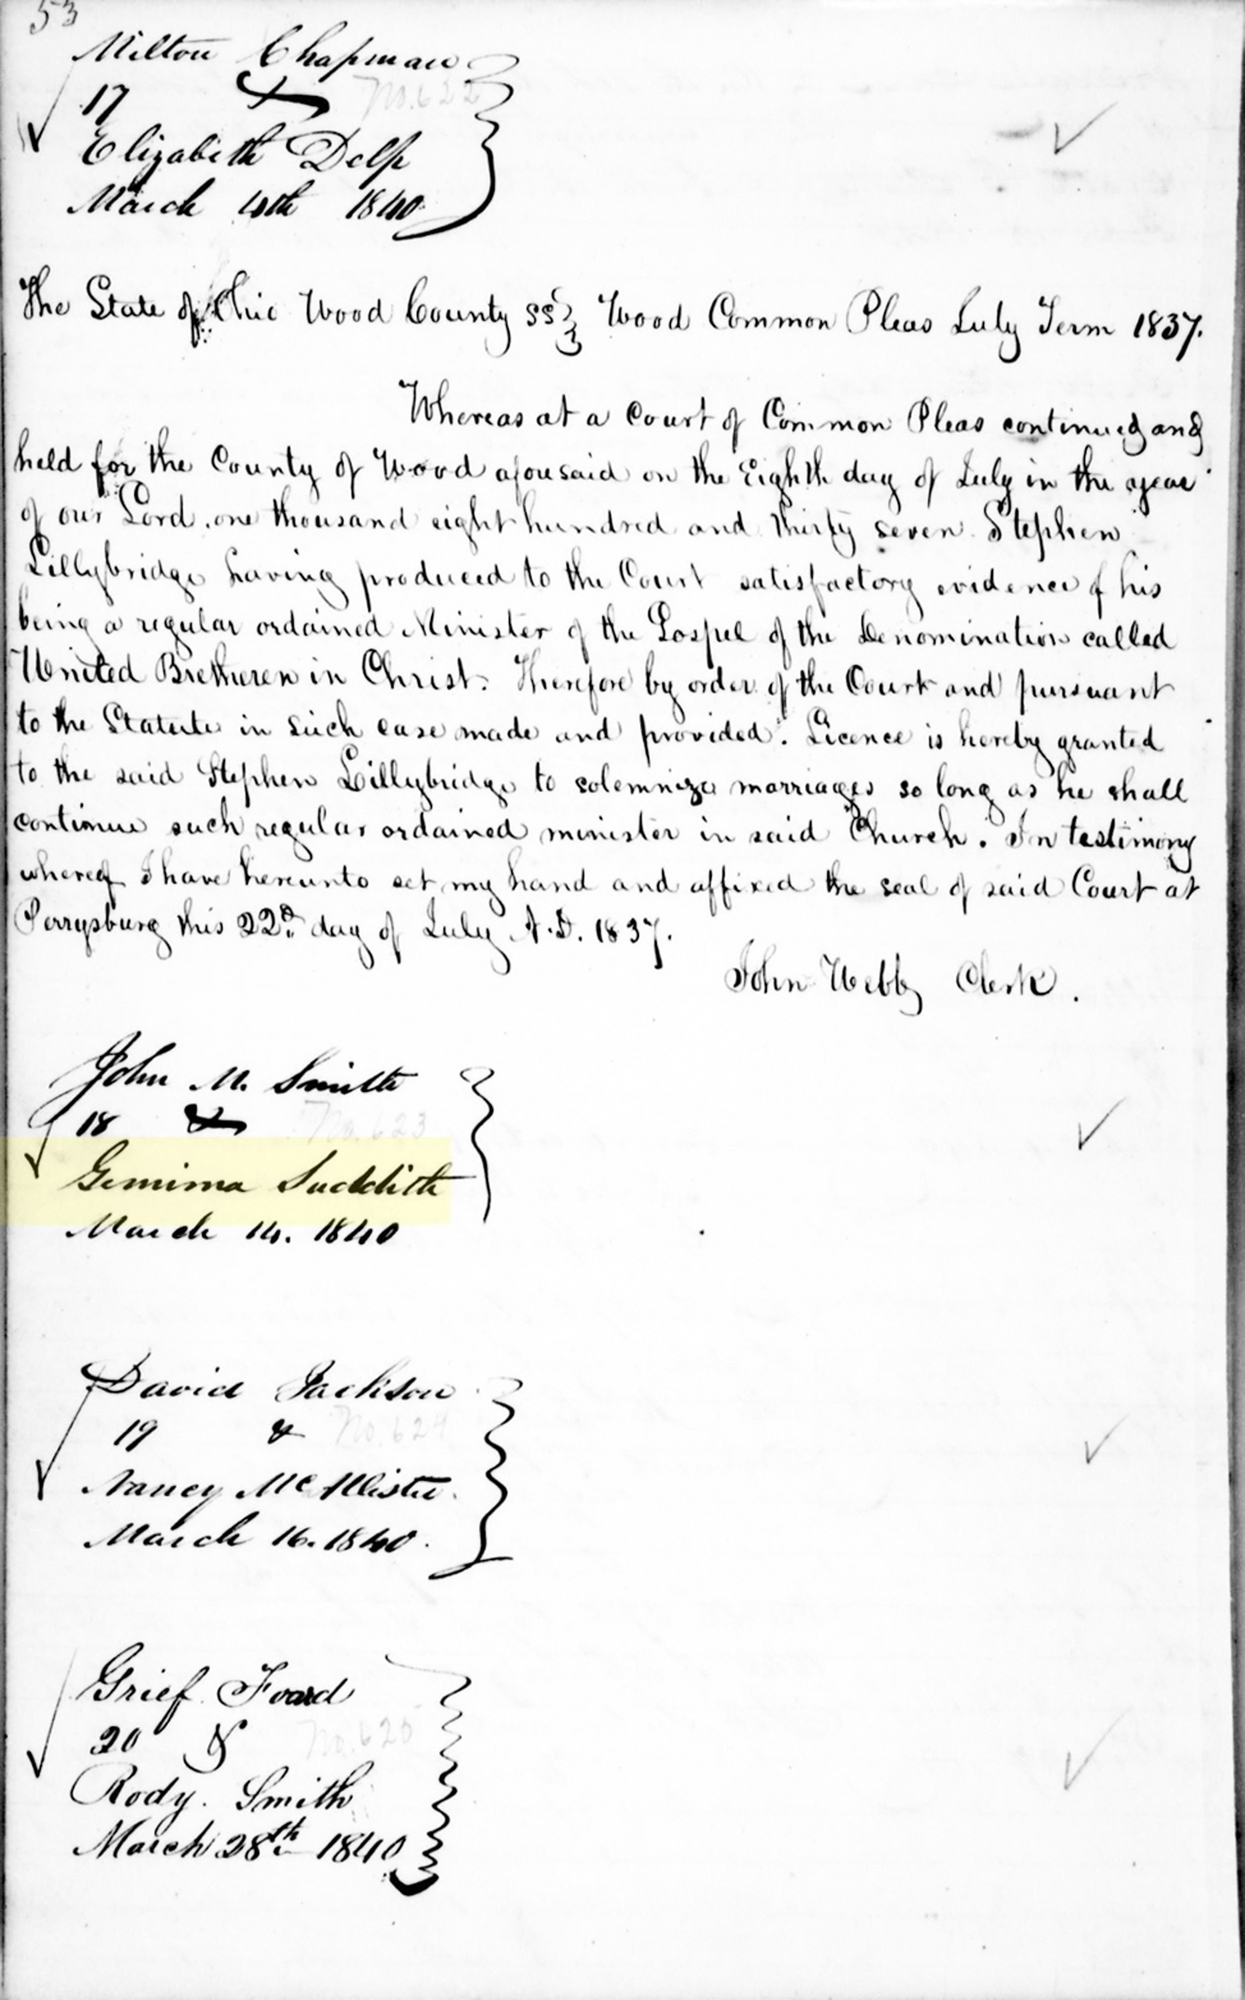 53
Milton Chapman
17 & No. 622
Elizabeth Delp
March 4th 1840
The State of Ohio Wood County ss Wood Common Pleas July Term 1837.
Whereas at a Court of Common Pleas continued and
held for the County of Wood aforesaid on the Eighth day of July in the year
of our Lord one thousand eight hundred and thirty seven Stephen
Lillybridge having produced to the Court satisfactory evidence of his
being a regular ordained Minister of the Gospel of the Denomination called
United Bretheren in Christ. Therefore by order of the Court and pursuant
to the Statute in such case made and provided. Licence is hereby granted
to the said Stephen Lillybridge to solemnize marriages so long as he shall
continue such regular ordained minister in said Church. In testimony
whereof I have hereunto set my hand and affixed the seal of said Court at
Perrysburg this 22d day of July A.D. 1837.
John Webb Clerk.
John M. Smith
18 & No. 623
Gemima Suddith
March 14. 1840
David Jackson
19 & No. 624
Nancy McAllister.
March 16. 1840.
Grief Foard
20 & No. 625
Rody. Smith
March 28th 1840